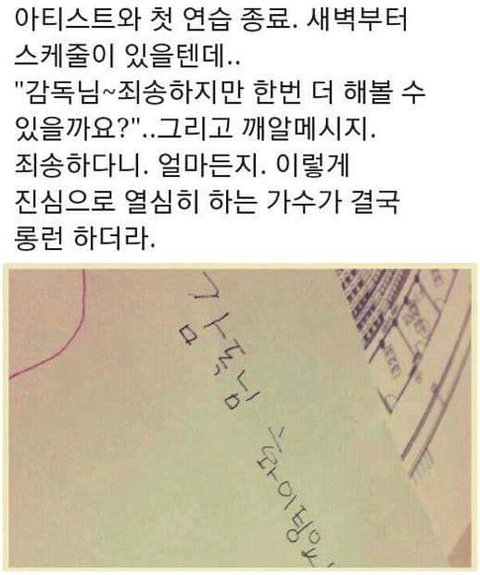 아티스트와 첫 연습 종료. 새벽부터
스케줄이 있을텐데..
"감독님~죄송하지만 한번 더 해볼 수
있을까요?"..그리고 깨알메시지.
죄송하다니. 얼마든지. 이렇게
진심으로 열심히 하는 가수가 결국
롱런 하더라.
감독님